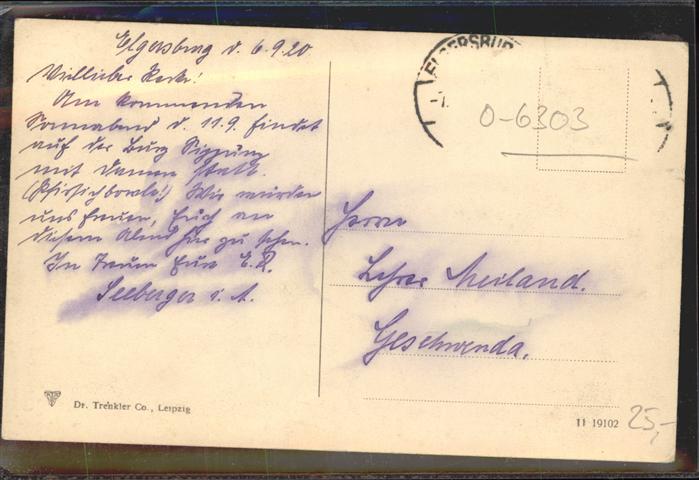 Elgersburg d. 6.9.20
Viellieber Recke!
Am kommenden
Sonnabend d. 11.9. findet
auf der Burg Sippung
mit Damen statt.
(Pfirsichbowle!) Wir würden
uns freuen, Euch an
diesem Abend hier zu sehen.
In Treuen Eure E.R.
Seeberger i. A.
Dr. Trenkler Co., Leipzig
ELGERSBUR
0-6303
Herrn
Lehrer Meiland.
Geschwenda.
11 19102
25,-